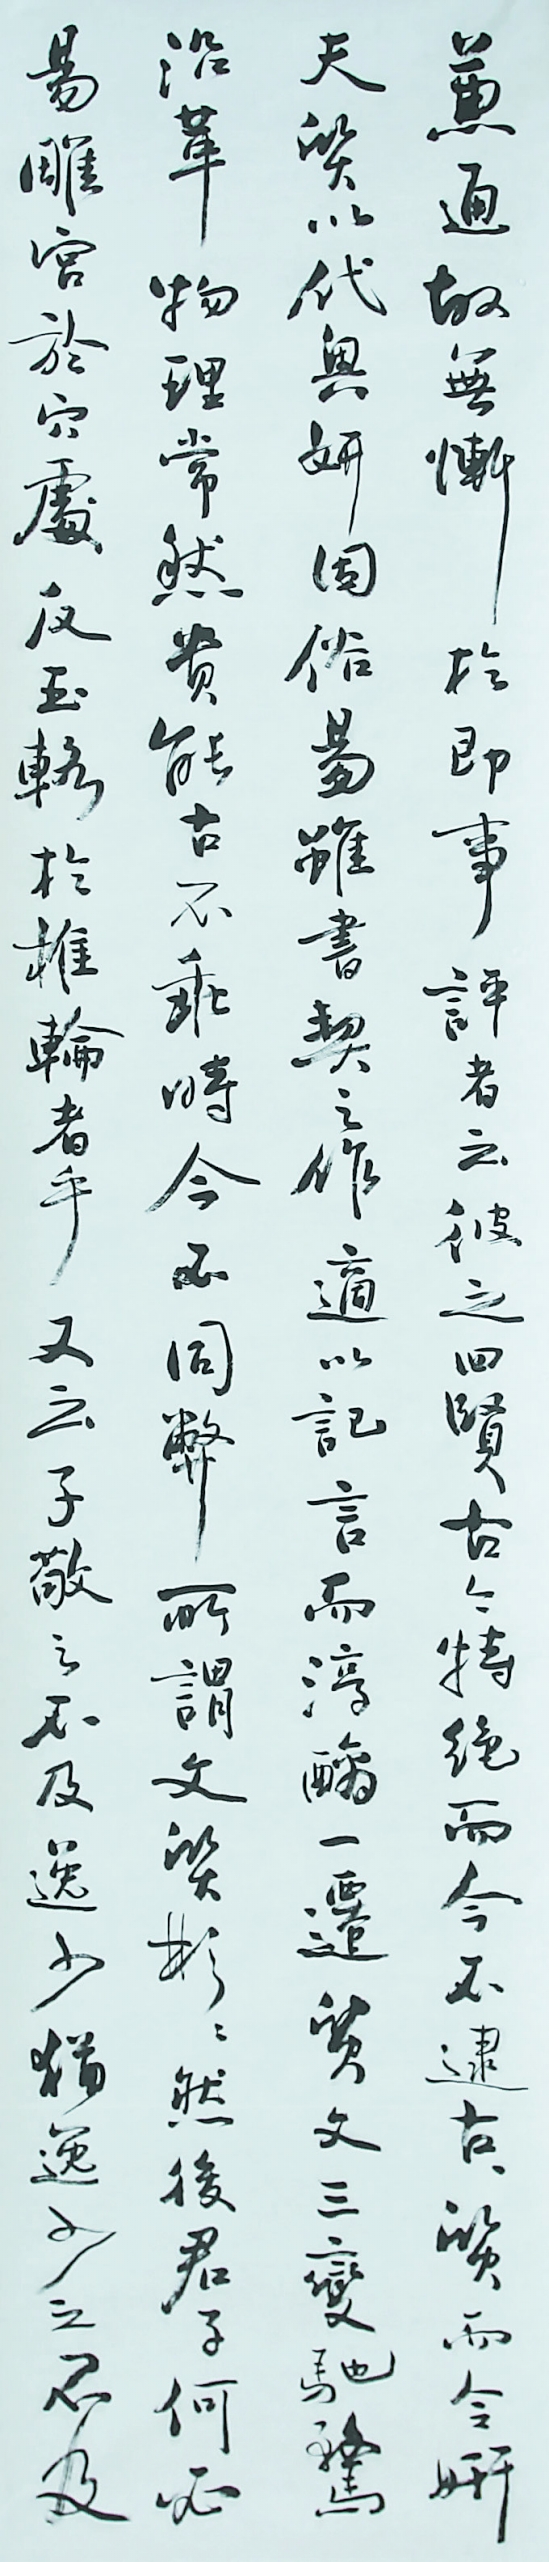 兼通故無慚於即事評者云彼之四賢古今特絕而今不逮古、質而今妍
夫質以代興妍因俗易雖書契之作適以記言而淳醨一遷質文三變馳騖
沿革物理常然貴能古不乖時今不同弊所謂文質彬〻然後君子何必
易雕宮於穴處反玉輅於椎輪者乎又云子敬之不及逸少猶逸少之不及